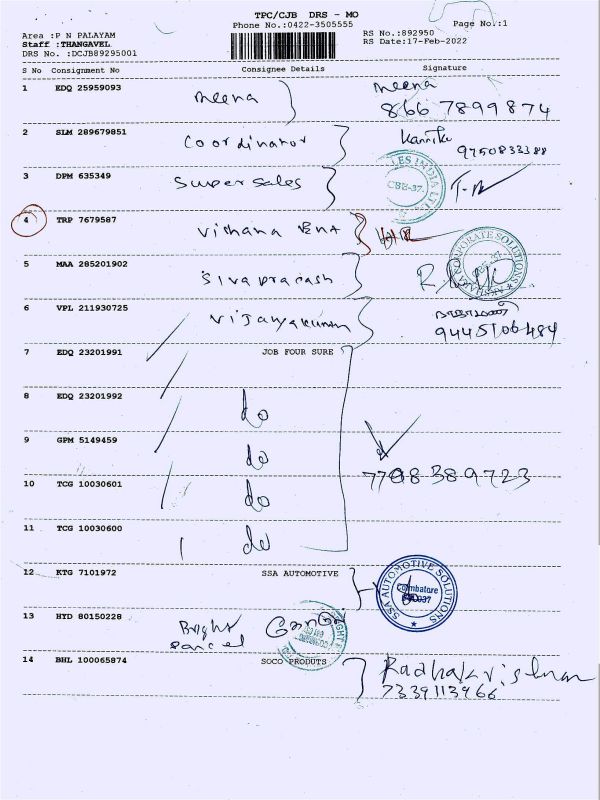 TPC/CJB DRS - MO
Phone No.:0422-3505555
Page No.:1
Area :P N PALAYAM
Staff :THANGAVEL
DRS No. :DCJB89295001
RS No.:892950
RS Date:17-Feb-2022
S No Consignment No Consignee Details Signature
1 EDQ 25959093 meena meena
866 7899874
2 SLM 289679851 Coordinator
9750833388
3 DPM 635349 Super sales
4 TRP 7679587
5 MAA 285201902 Sivapracash
6 VPL 211930725
9445106484
7 EDQ 23201991 JOB FOUR SURE
8 EDQ 23201992 do
9 GPM 5149459 do
7708389723
10 TCG 10030601 do
11 TCG 10030600 do
12 KTG 7101972 SSA AUTOMOTIVE
SSA AUTOMOTIVE SOLUTIONS
Coimbatore
13 HYD 80150228 Bright
parcel
14 BHL 100065874 SOCO PRODUTS Radhakrishnan
7339113966